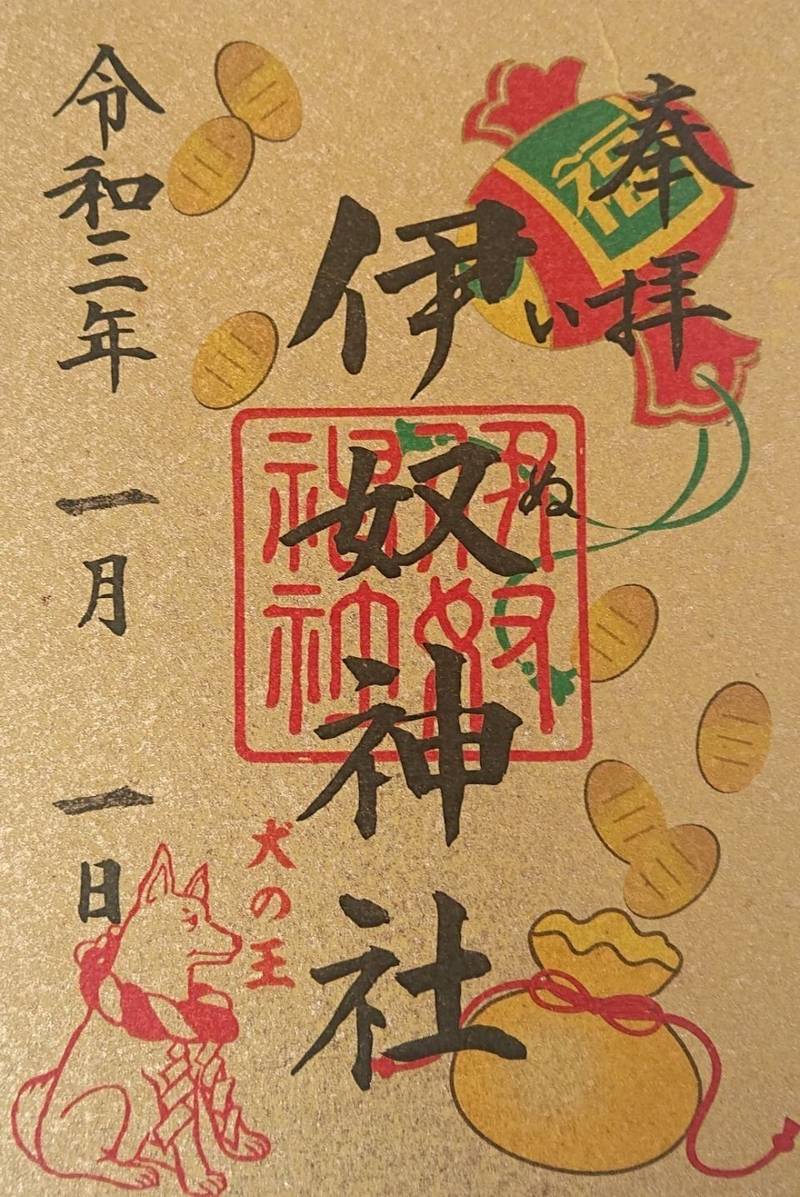 奉拝
福
伊奴神社
いぬ
伊奴神社
犬の王
令和三年 一月 一日